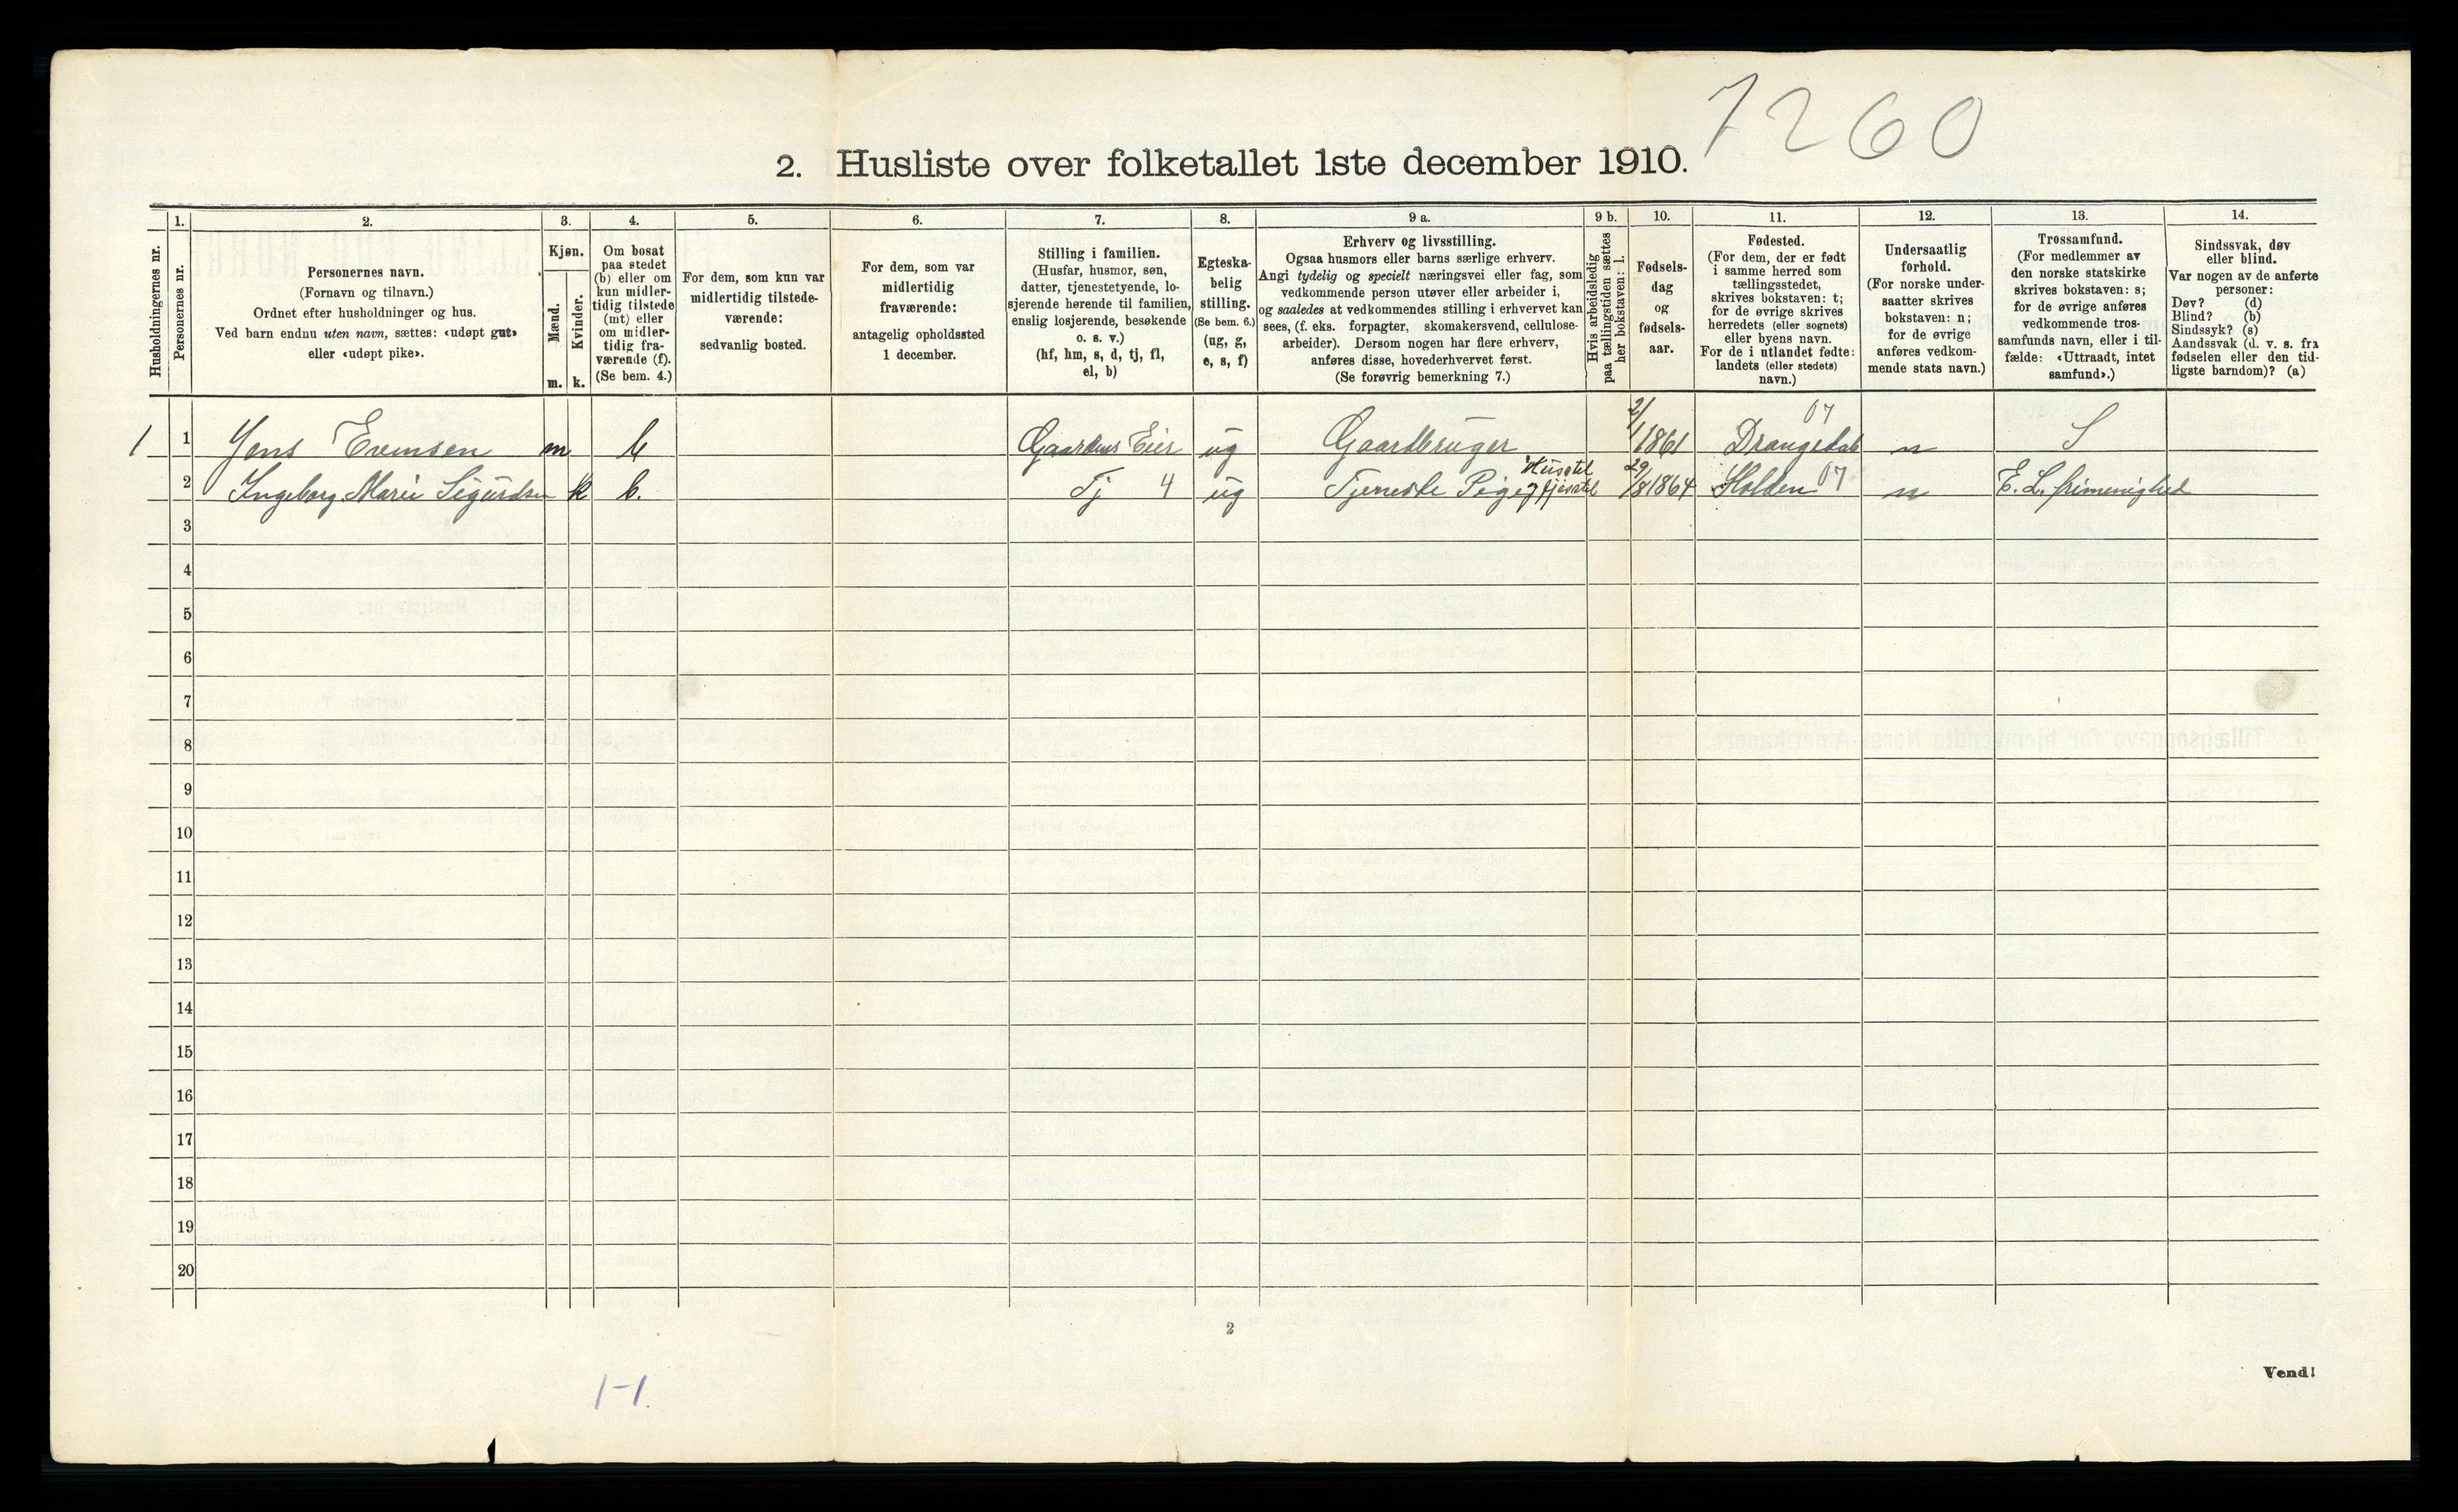 7260
2. Husliste over folketallet 1ste december 1910.
Husholdningernes nr.
1.
Personernes nr.
2.
Personernes navn.
(Fornavn og tilnavn.)
Ordnet efter husholdninger og hus.
Ved barn endnu uten navn, sættes: «udøpt gut»
eller «udøpt pike».
3.
Kjøn.
Mænd.
Kvinder.
m. k.
4.
Om bosat
paa stedet
(b) eller om
kun midler-
tidig tilstede
(mt) eller
om midler-
tidig fra-
værende (f).
(Se bem. 4.)
5.
For dem, som kun var
midlertidig tilstede-
værende:
sedvanlig bosted.
6.
For dem, som var
midlertidig
fraværende:
antagelig opholdssted
1 december.
7.
Stilling i familien.
(Husfar, husmor, søn,
datter, tjenestetyende, lo-
sjerende hørende til familien,
enslig losjerende, besøkende
o. s. v.)
(hf, hm, s, d, tj, fl,
el, b)
8.
Egteska-
belig
stilling.
(Se bem. 6.)
(ug, g,
e, s, f)
9 a.
Erhverv og livsstilling.
Ogsaa husmors eller barns særlige erhverv.
Angi tydelig og specielt næringsvei eller fag, som
vedkommende person utøver eller arbeider i,
og saaledes at vedkommendes stilling i erhvervet kan
sees, (f. eks. forpagter, skomakersvend, cellulose-
arbeider). Dersom nogen har flere erhverv,
anføres disse, hovederhvervet først.
(Se forøvrig bemerkning 7.)
9 b.
Hvis arbeidsledig
paa tællingstiden sættes
her bokstaven: l.
10.
Fødsels-
dag
og
fødsels-
aar.
11.
Fødested.
(For dem, der er født
i samme herred som
tællingsstedet,
skrives bokstaven: t;
for de øvrige skrives
herredets (eller sognets)
eller byens navn.
For de i utlandet fødte:
landets (eller stedets)
navn.)
12.
Undersaatlig
forhold.
(For norske under-
saatter skrives
bokstaven: n;
for de øvrige
anføres vedkom-
mende stats navn.)
13.
Trossamfund.
(For medlemmer av
den norske statskirke
skrives bokstaven: s;
for de øvrige anføres
vedkommende tros-
samfunds navn, eller i til-
fælde: «Uttraadt, intet
samfund».)
14.
Sindssvak, døv
eller blind.
Var nogen av de anførte
personer:
Døv? (d)
Blind? (b)
Sindssyk? (s)
Aandssvak (d. v. s. fra
fødselen eller den tid-
ligste barndom)? (a)
1 1 Jens Evensen m b Gaardens Eier ug Gaardbruger 2/1 1861 Drangedal 07 n S
2 Ingeborg Marie Sigurdsen k b. Tj 4 ug Tjeneste Pige Husstel 29/8 1864 Holden 07 n E. L. frimenighed
3
4
5
6
7
8
9
10
11
12
13
14
15
16
17
18
19
20
2
Vend!
1-1.